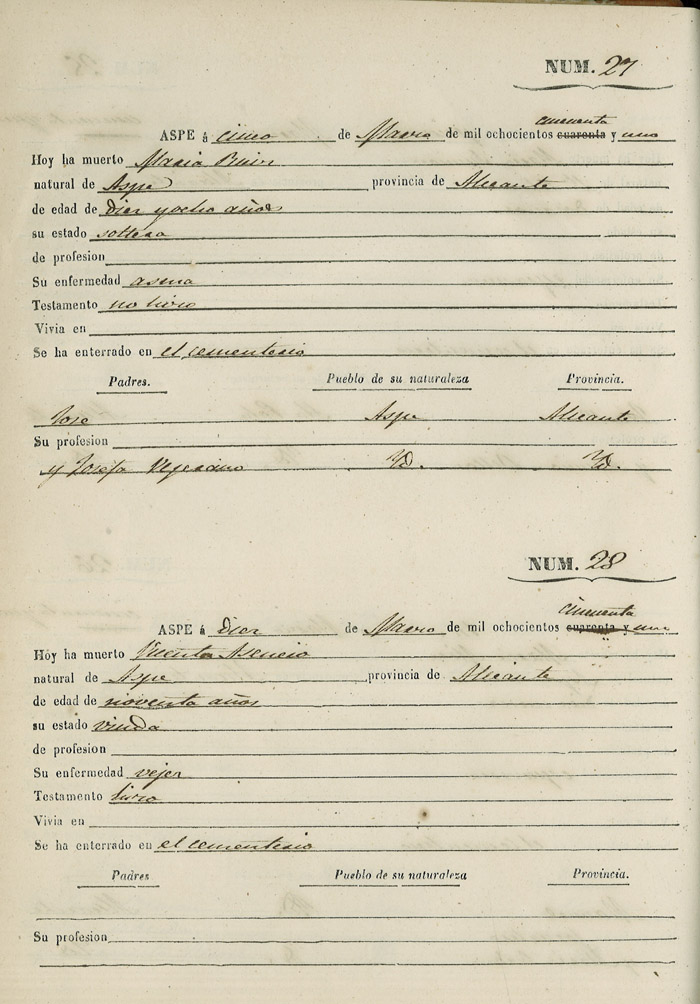 NUM. 27
cincuenta
ASPE á cinco de Marzo de mil ochocientos cuarenta y uno
Hoy ha muerto Maria
natural de Aspe provincia de Alicante
de edad de diez y ocho años
su estado soltera
de profesion
Su enfermedad asma
Testamento no hizo
Vivia en
Se ha enterrado en el cementerio
Padres. Pueblo de su naturaleza Provincia.
Jose Aspe Alicante
Su profesion
y Josefa Yd. Yd.
NUM. 28
cincuenta
ASPE á Diez de Marzo de mil ochocientos cuarenta y uno
Hoy ha muerto Vicenta Asencio
natural de Aspe provincia de Alicante
de edad de noventa años
su estado viuda
de profesion
Su enfermedad vejez
Testamento hizo
Vivia en
Se ha enterrado en el cementerio
Padres Pueblo de su naturaleza Provincia.
Su profesion